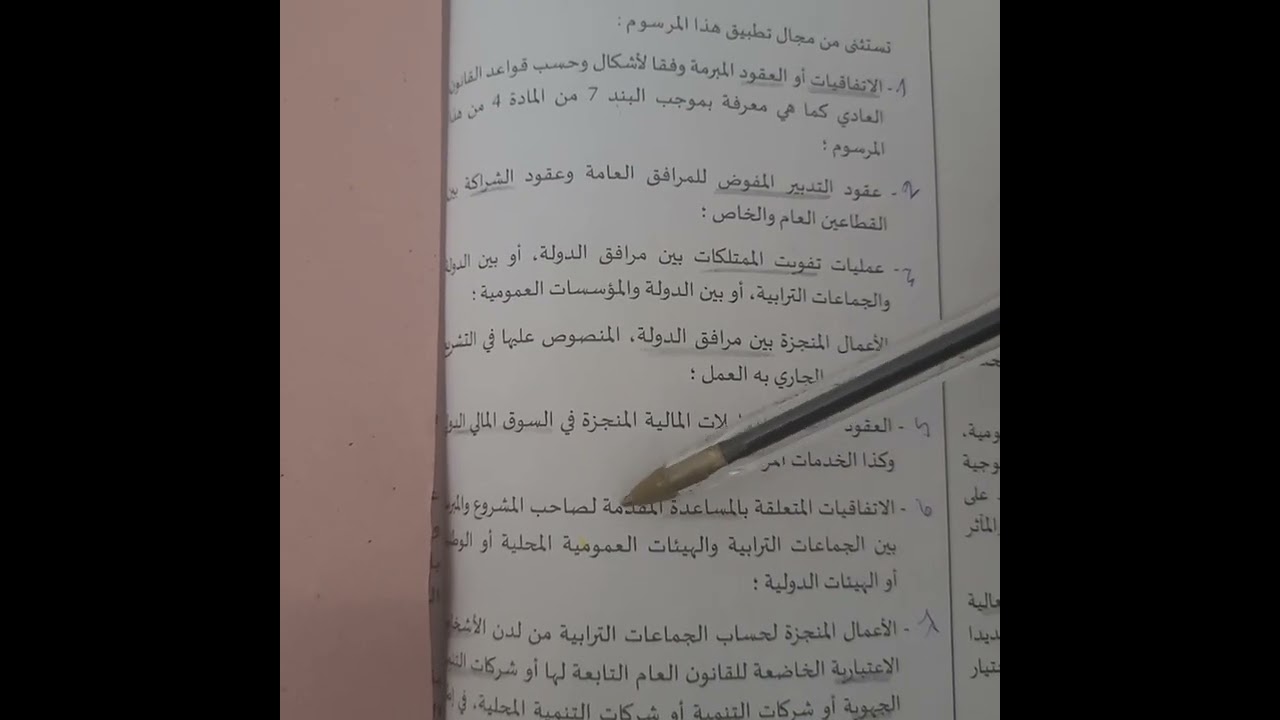 تستثنى من مجال تطبيق هذا المرسوم :
1 - الاتفاقيات أو العقود المبرمة وفقا لأشكال وحسب قواعد القانون
العادي كما هي معرفة بموجب البند 7 من المادة 4 من هذا
المرسوم ؛
2 - عقود التدبير المفوض للمرافق العامة وعقود الشراكة بين
القطاعين العام والخاص ؛
3 - عمليات تفويت الممتلكات بين مرافق الدولة، أو بين الدولة
والجماعات الترابية، أو بين الدولة والمؤسسات العمومية ؛
الأعمال المنجزة بين مرافق الدولة، المنصوص عليها في
الجاري به العمل ؛
5 - العقود المالية المنجزة في السوق المالي
وكذا الخدمات
6 - الاتفاقيات المتعلقة بالمساعدة المقدمة لصاحب المشروع
بين الجماعات الترابية والهيئات العمومية المحلية أو
أو الهيئات الدولية ؛
- الأعمال المنجزة لحساب الجماعات الترابية من لدن
الاعتبارية الخاضعة للقانون العام التابعة لها أو شركات
الجهوية أو شركات التنمية أو شركات التنمية المحلية، في
على